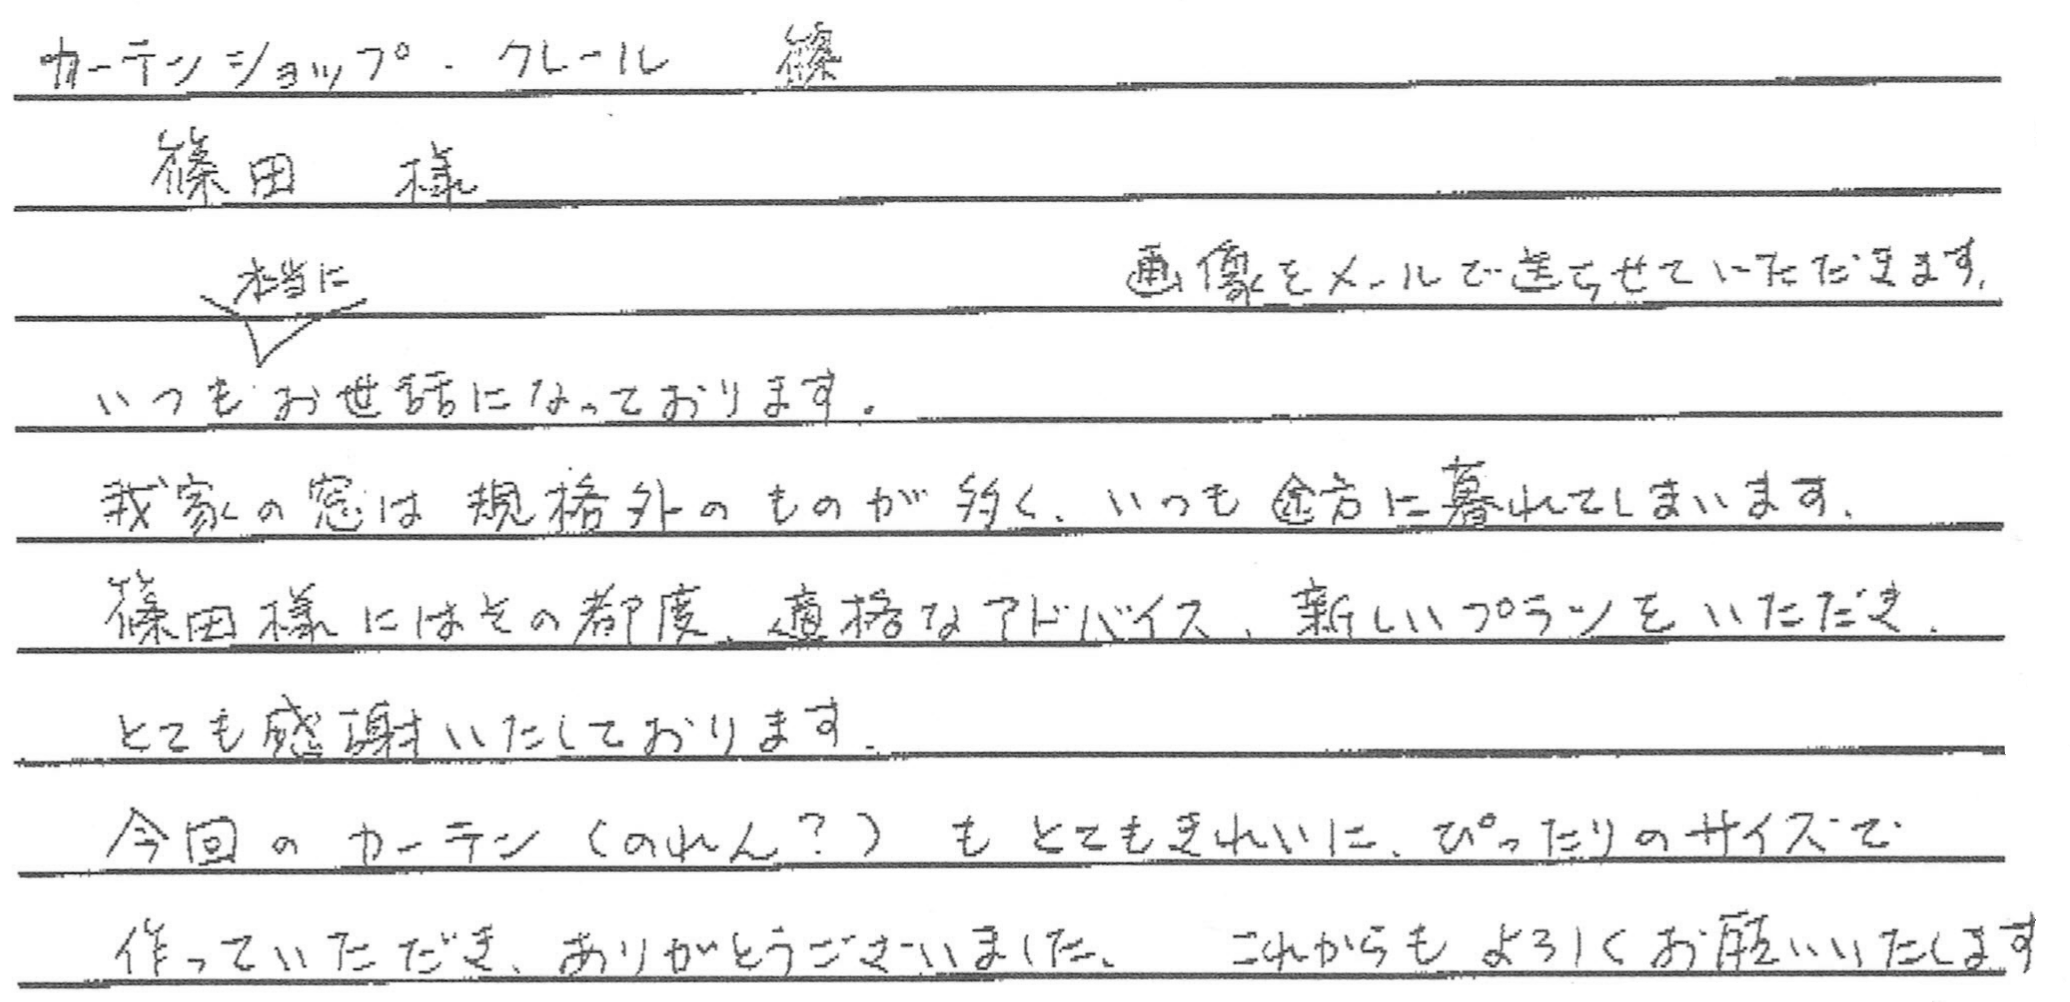 カーテンショップ・クレール 篠
篠田 様
画像をメールで送らせていただきます。
本当に
いつもお世話になっております。
我家の窓は規格外のものが多く、いつも途方に暮れてしまいます。
篠田様にはその都度、適格なアドバイス、新しいプランをいただき、
とても感謝いたしております。
今回のカーテン(のれん?)もとてもきれいに、ぴったりのサイズで
作っていただき、ありがとうございました。 これからもよろしくお願いいたします